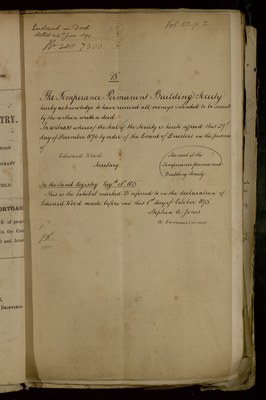 Endorsed on Deed
dated 24th June 1870
No. 7300
Vol. 22 p. 2
"B"
The Temperance Permanent Building Society
hereby acknowledge to have received all moneys intended to be secured
by the within written deed
In witness whereof the Seal of the Society is hereto affixed this 29th
day of December 1874 by order of the Board of Directors in the presence
of
Edward Wood
Secretary
The seal of the
Temperance Permanent
Building Society
In the Land Registry Reg
This is the exhibit marked B referred to in the declaration of
Edward Wood made before me this 1st day of October 1875
Stephen A. Jones
A Commissioner
TRY.
MORTGAGE